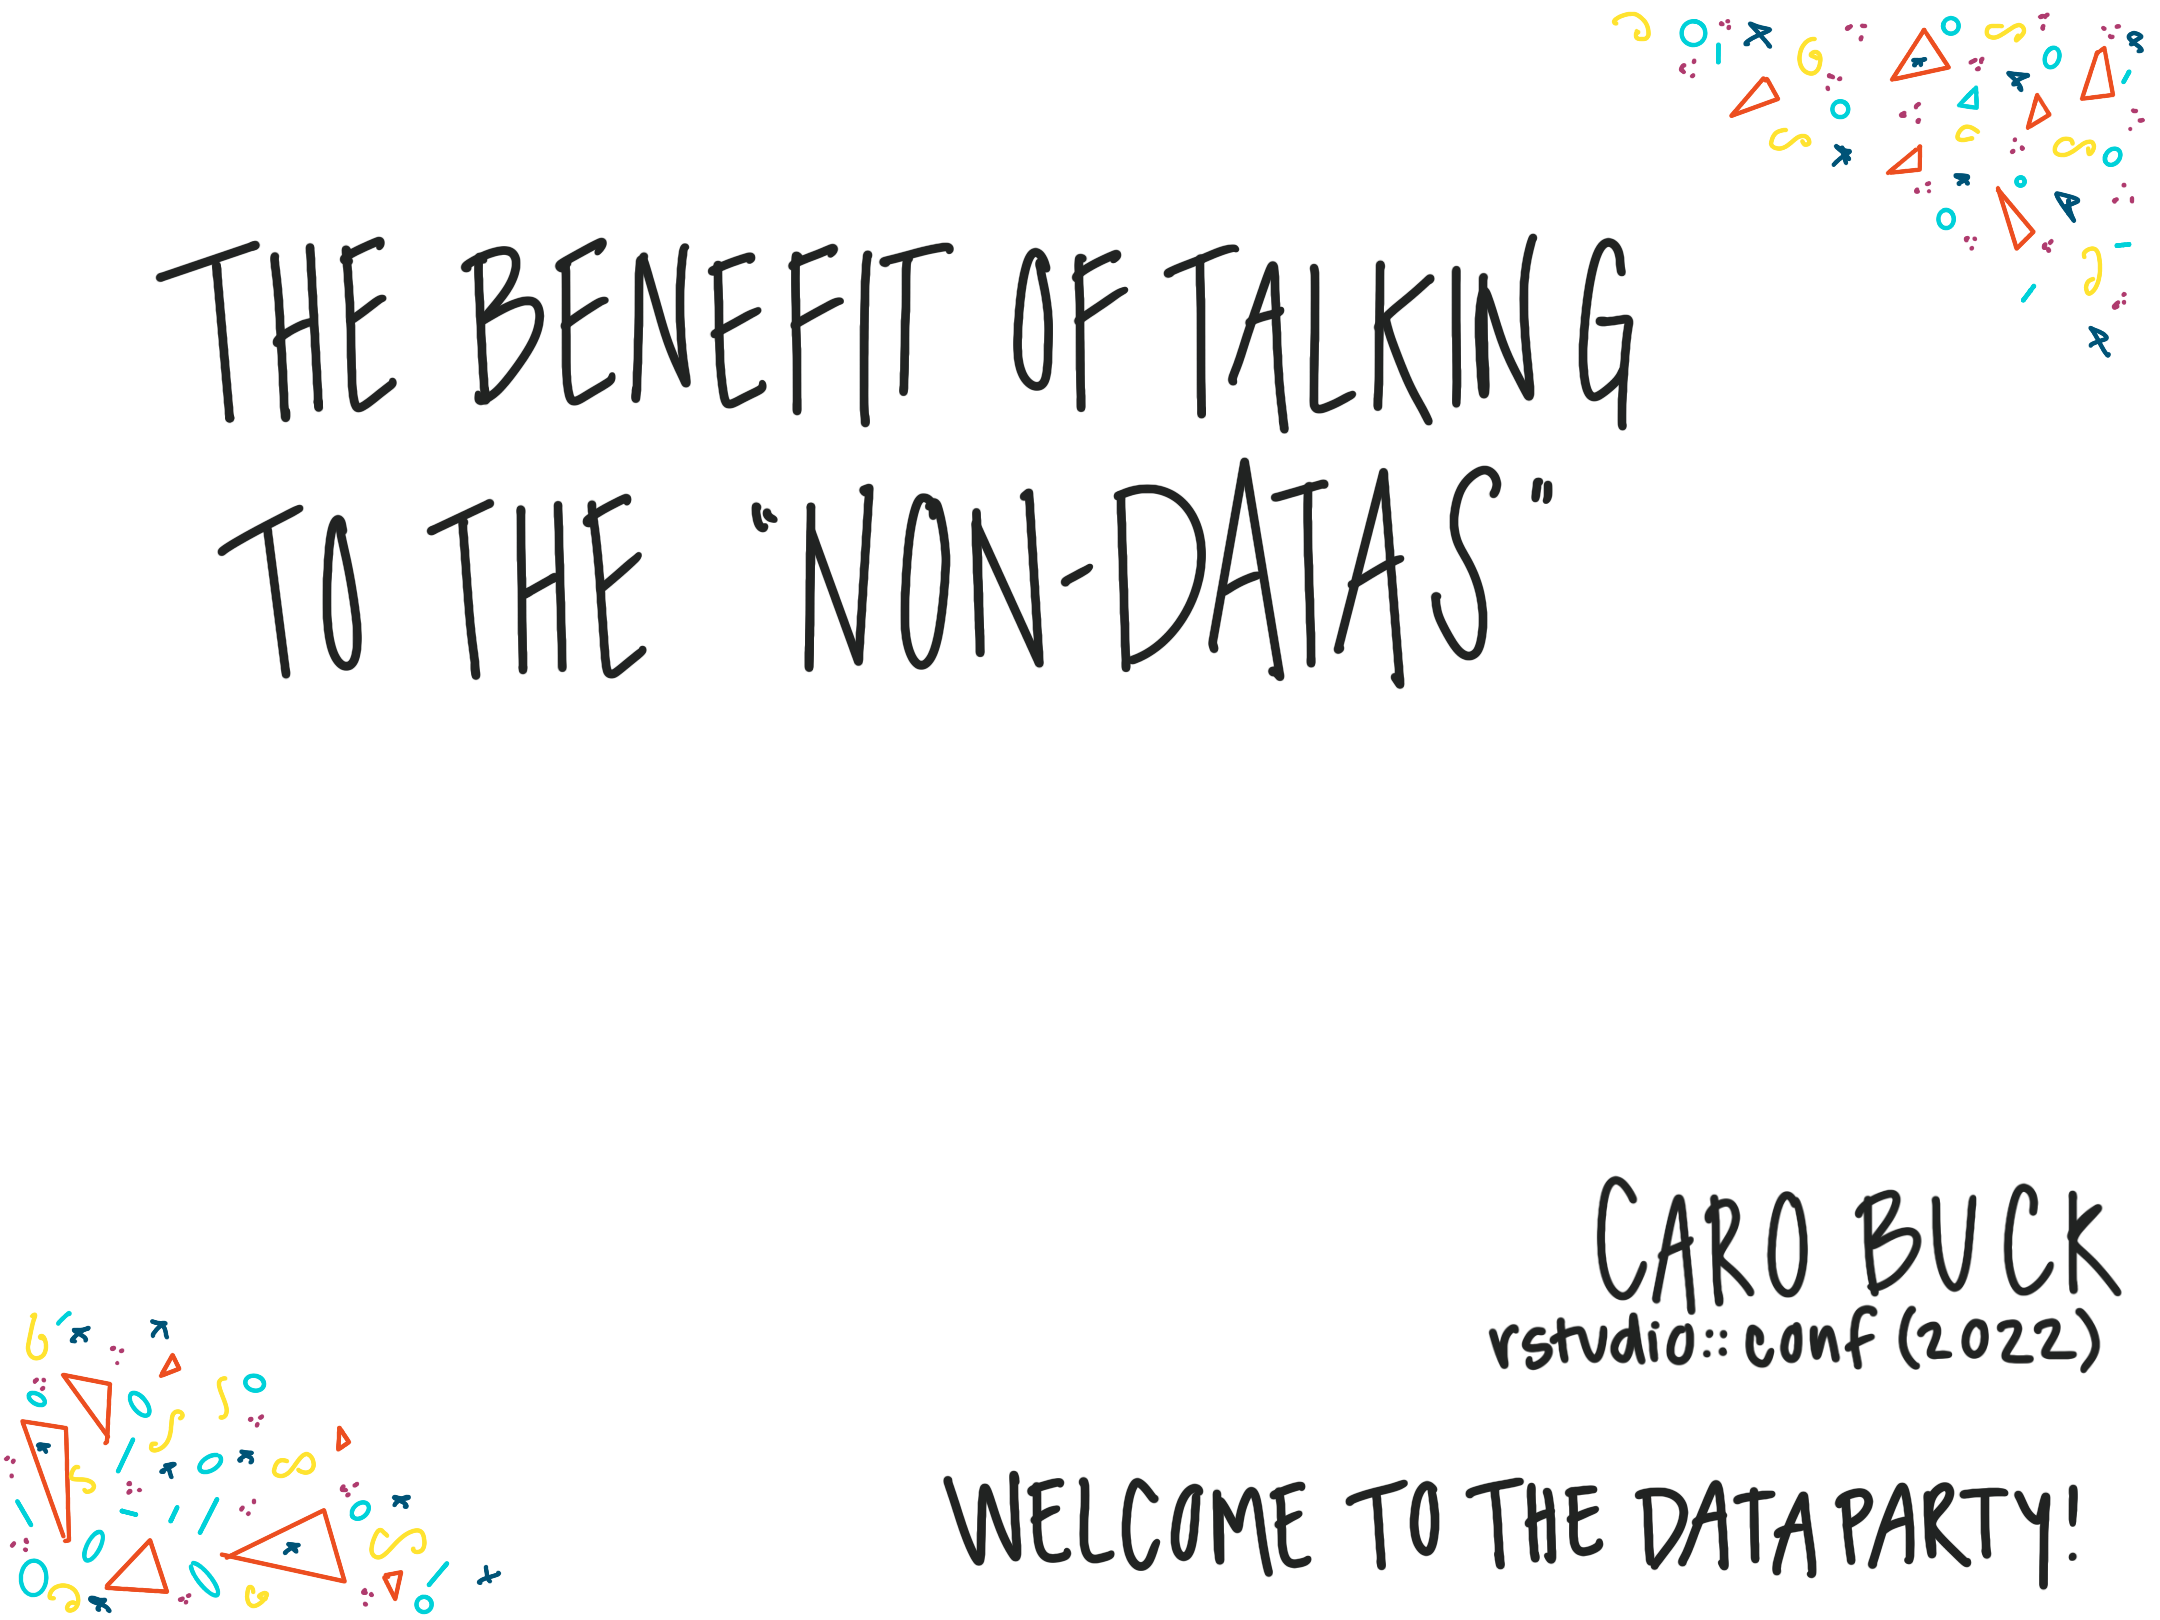 THE BENEFIT OF TALKING
TO THE "NON-DATAS"
CARO BUCK
rstudio::conf(2022)
WELCOME TO THE DATA PARTY!